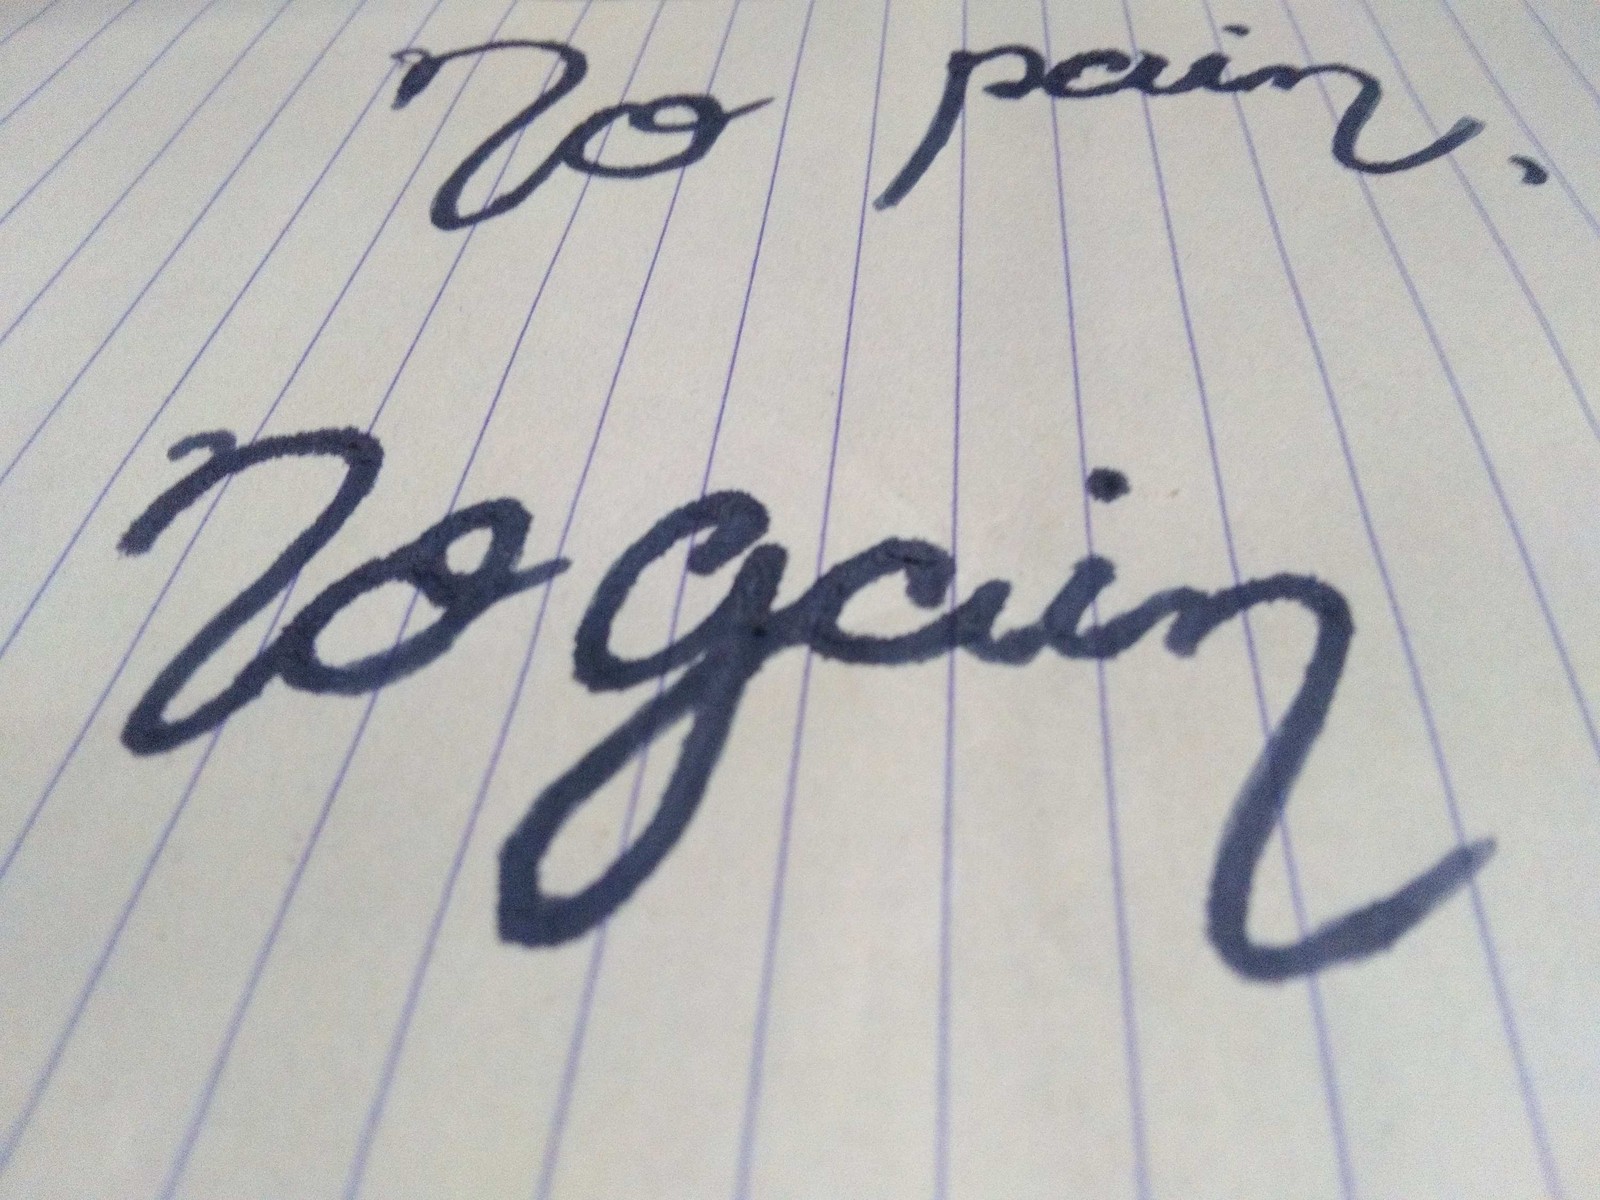 No pain.
No gain